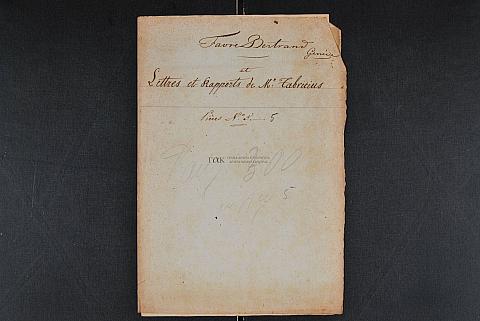 Favre Bertrand
Genève
et
Lettres et Rapports de Mr. Fabricius
Pièces Nos 1 — 5
ΓΑΚ
5